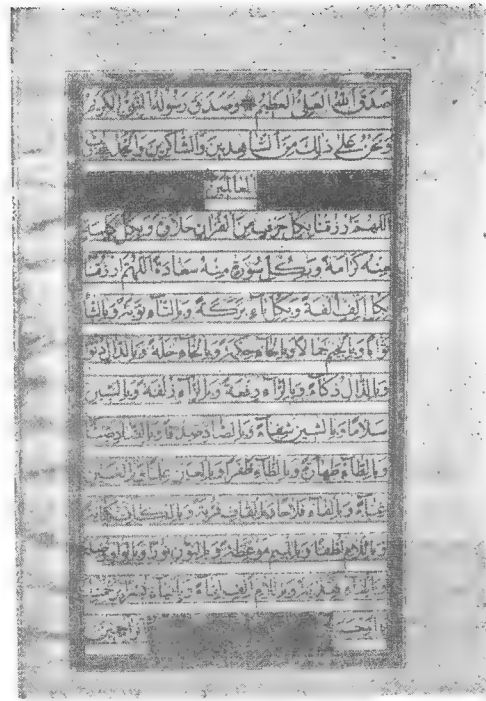 صدق الله العلي العظيم وصدق رسوله النبي الكريم
ونحن على ذلك من الشاهدين والشاكرين والحمد لله رب
العالمين
اللهم ارزقنا بكل حرف من القرآن حلاوة وبكل كلمة
منه كرامة وبكل سورة منه سعادة اللهم ارزقنا
بكل الف الفة وبكل باء بركة وبالتاء توبة وبالثاء
ثوابا وبالجيم جمالا وبالحاء حكمة وبالخاء خلة وبالدال دنوا
وبالذال ذكاء وبالراء رفعة وبالزاء زلفة وبالسين
سلاما وبالشين شفاء وبالصاد صدقا وبالضاد ضياء
وبالطاء طهارة وبالظاء ظفرا وبالعين علما وبالغين
غناء وبالفاء فلاحا وبالقاف قربة وبالكاف كفاية
وباللام لطفا وبالميم موعظة وبالنون نورا وبالواو وصلة